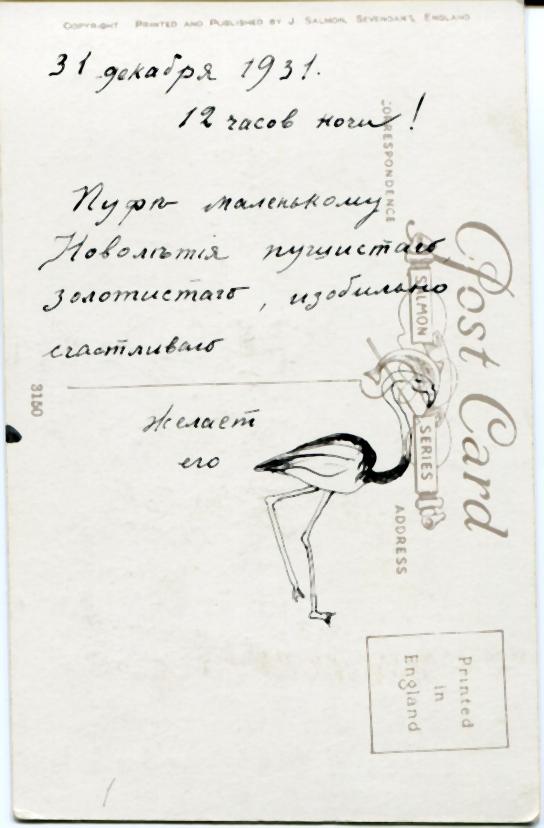 COPYRIGHT PRINTED AND PUBLISHED BY J. SALMON, SEVENOAKS, ENGLAND
31 декабря 1931.
12 часов ночи!
Пуфъ маленькому
Новолѣтія пушистаго
золотистаго, изобильно
счастливаго
желает
его
CORRESPONDENCE
Post Card
SALMON
SERIES
ADDRESS
3150
Printed
in
England